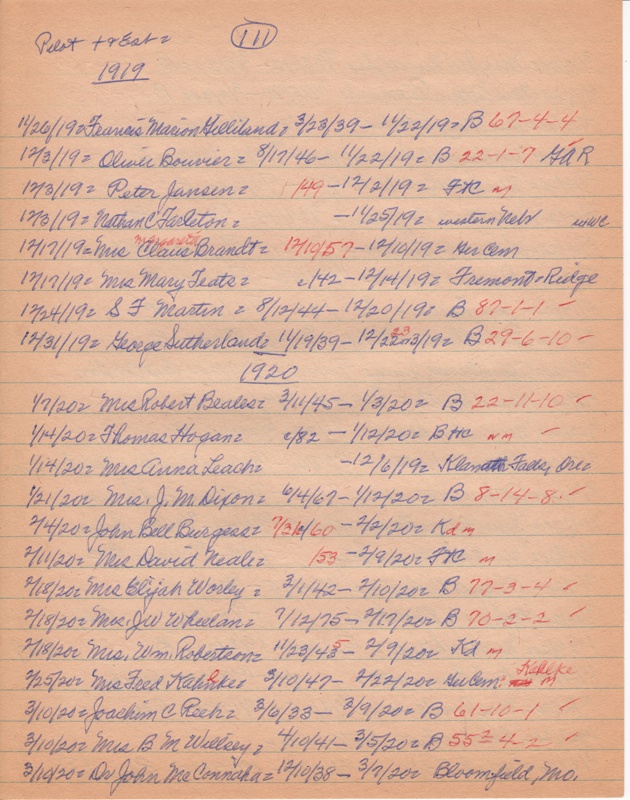 Pilot + & Est =
111
1919
11/26/19 = Francis Marion Gilliland = 3/23/39 - 11/22/19 = B 67-4-4
12/3/19 = Oliver Bouvier = 8/17/46 - 11/22/19 = B 22-1-7 GAR
12/3/19 = Peter Jansen = /49 - 12/2/19 = FHC m
12/3/19 = Nathan C Tarleton = - 11/25/19 = western Nebr
Margareta
12/17/19 = Mrs Claus Brandt = 12/10/57 - 12/10/19 = Ger Cem
12/17/19 = Mrs Mary Teats = c/42 - 12/14/19 = Fremont = Ridge
12/24/19 = S F Martin = 8/12/44 - 12/20/19 = B 87-1-1 ✓
12/31/19 = George Sutherland = 11/19/39 - 12/ 23 /19 = B 29-6-10 ✓
1920
1/7/20 = Mrs Robert Beales = 3/11/45 - 1/3/20 = B 22-11-10 ✓
1/14/20 = Thomas Hogan = c/82 - 1/12/20 = B HC m ✓
1/14/20 = Mrs Anna Leach = - 12/6/19 = Klamath Falls, Ore
1/21/20 = Mrs. J. M. Dixon = 6/4/67 - 1/12/20 = B 8-14-8 ✓
2/4/20 = John Bell Burgess = 7/31/60 - 2/2/20 = Kd m
2/11/20 = Mrs David Neale = /53 - 2/9/20 = FHC m
2/18/20 = Mrs Elijah Worley = 3/1/42 - 2/10/20 = B 77-3-4 ✓
2/18/20 = Mrs. J W Wheelan = 7/12/75 - 2/17/20 = B 70-2-2 ✓
2/18/20 = Mrs. Wm. Robertson = 11/23/43 5 - 2/9/20 = Kd m
2/25/20 = Mrs Fred Kahnke = 3/10/47 - 2/22/20 = Ger Cem Kahlke m
3/10/20 = Joachim C Reeh = 3/6/33 - 3/9/20 = B 61-10-1 ✓
3/10/20 = Mrs B M Willsey = 4/10/41 - 3/5/20 = B 55-4-2 ✓
3/10/20 = Dr John McConnaha = 12/10/38 - 3/7/20 = Bloomfield, Mo.